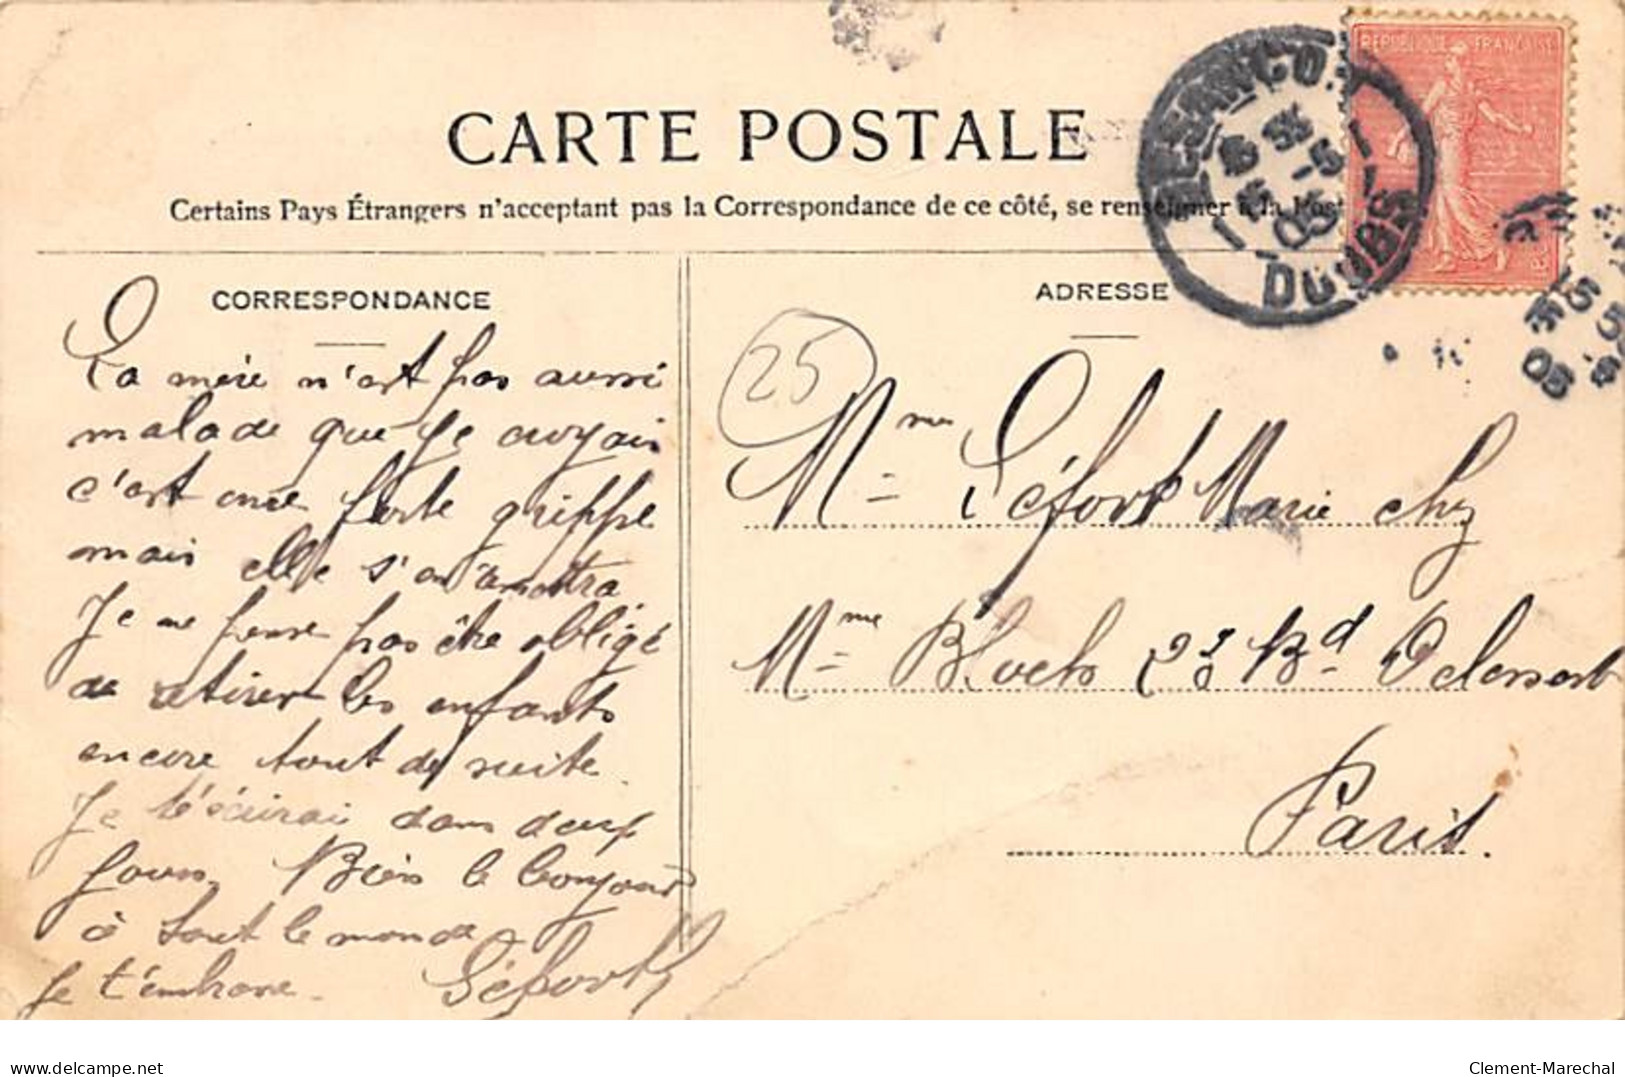 CARTE POSTALE
Certains Pays Étrangers n'acceptant pas la Correspondance de ce côté, se renseigner à la Post
RÉPUBLIQUE FRANÇAISE
BESANÇON
DOUBS
CORRESPONDANCE
La mère n'est pas aussi
malade que je croyais
c'est une forte grippe
mais elle s'en
Je ne pense pas être obligé
de retirer les enfants
encore tout de suite
Je t'écrirai dans deux
jours. Bien le bonjour
à tout le monde
Je t'embrasse. Léfort
ADRESSE
25
Mme Léfort Marie chez
Mme Bloch 23 Bd Delessert
Paris.
delcampe.net
Clement-Marechal